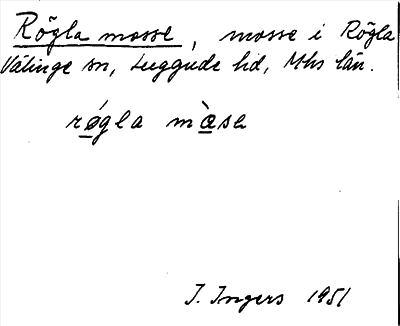 Rögla mosse, mosse i Rögla
Välinge sn, Luggude hd, Mhs län.
rǿgla màsa
I. Ingers 1951